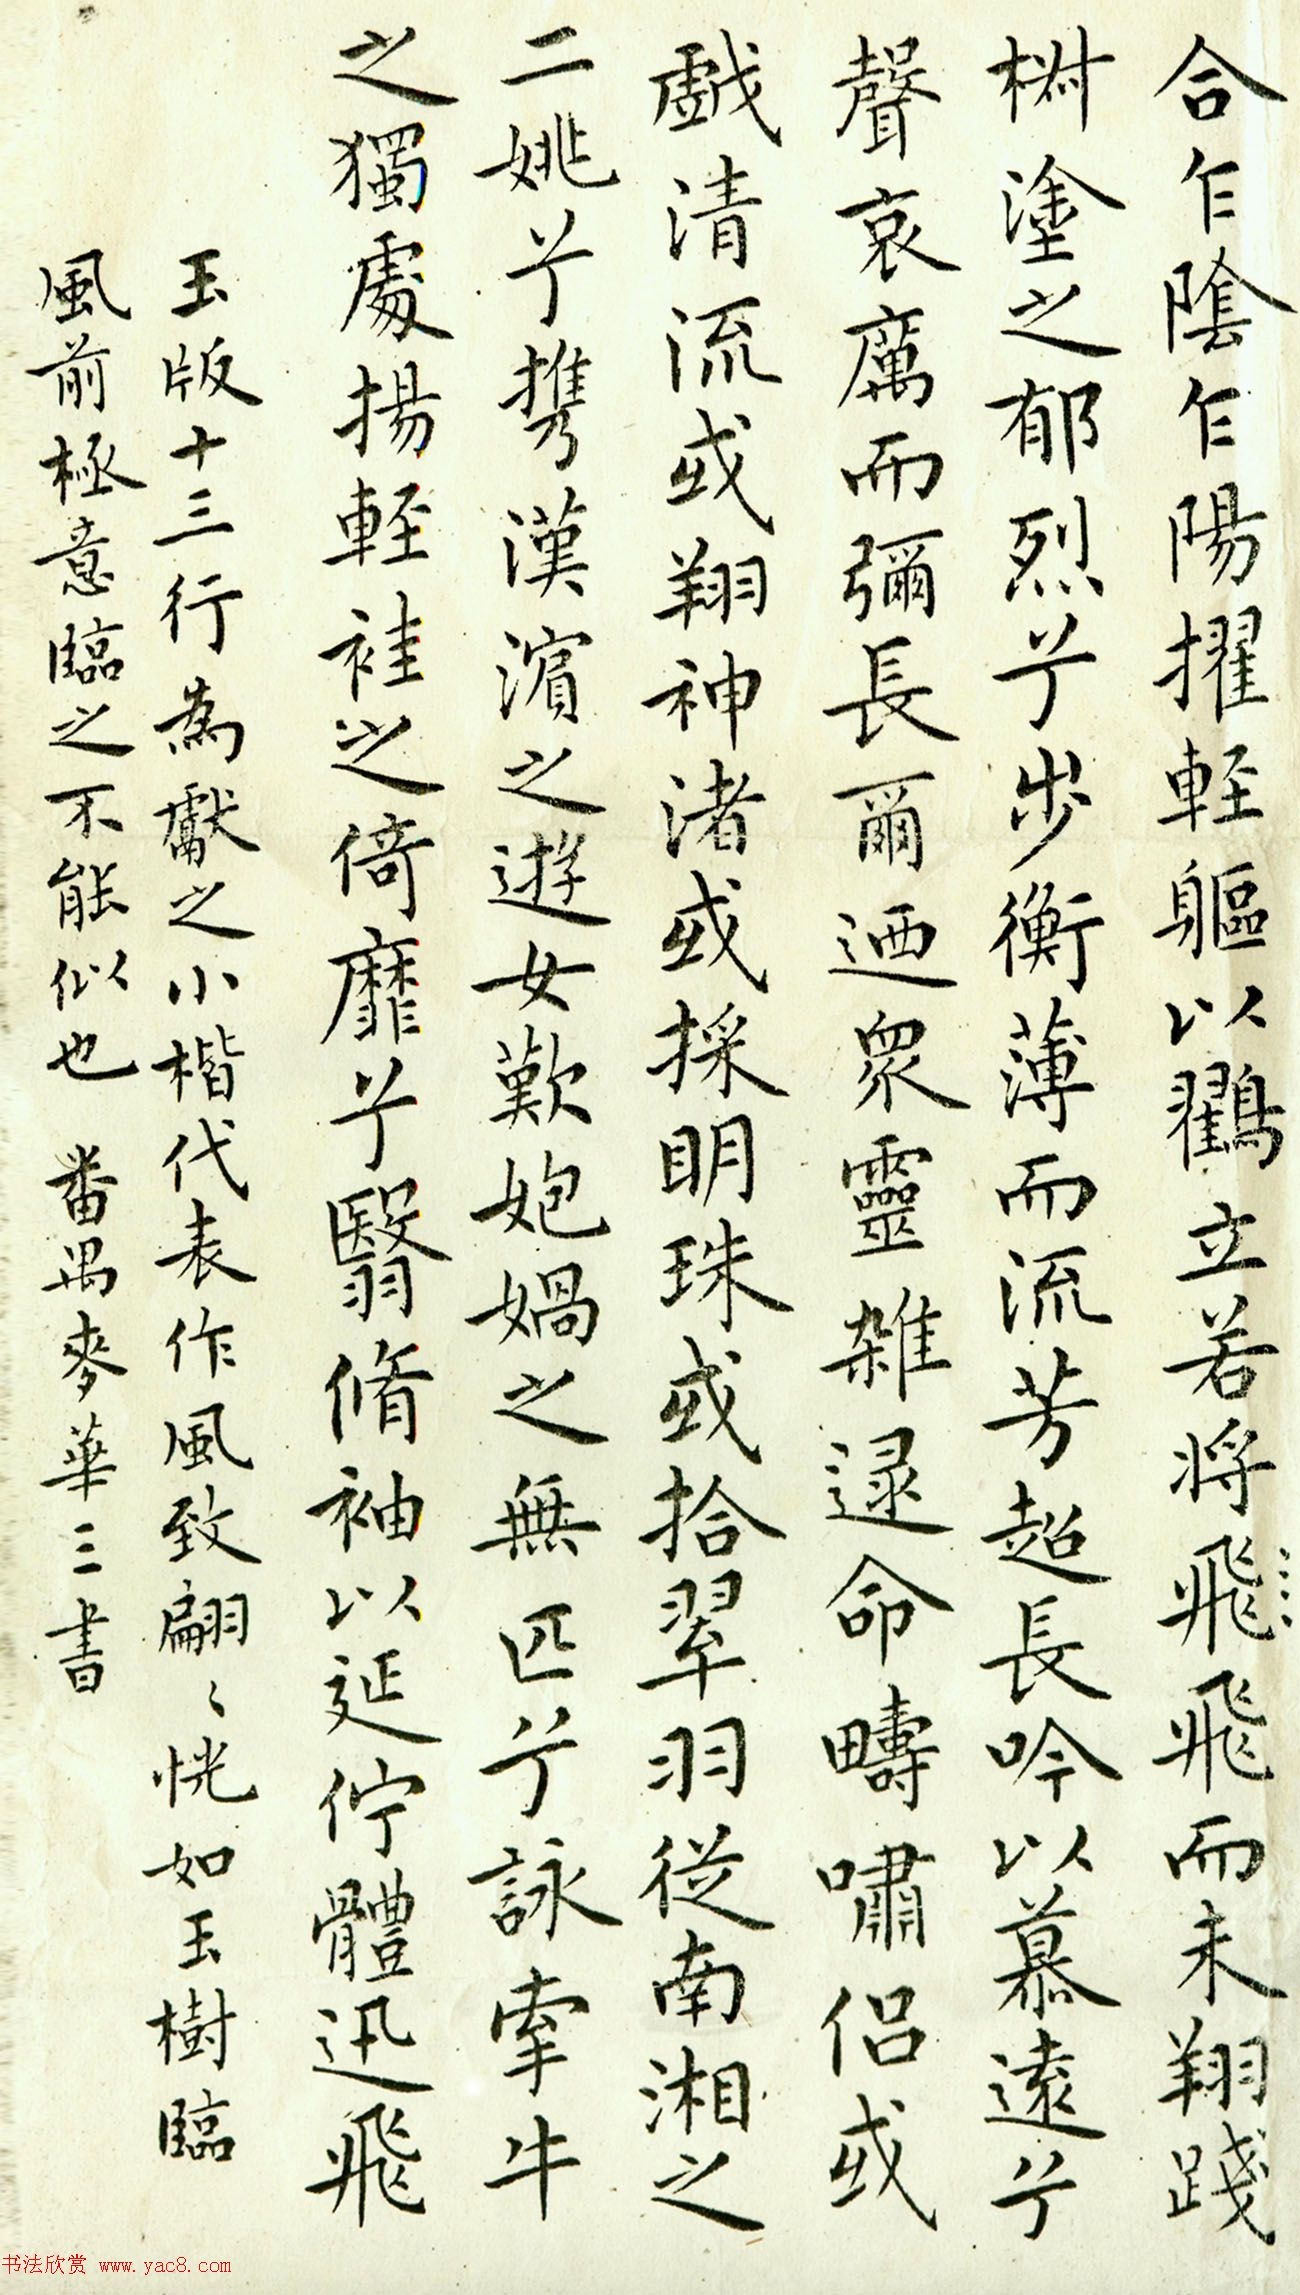 合乍陰乍陽擢輊軀以鸖立若將飛飛而未翔踐
椒塗之郁烈兮步衡薄而流芳超長吟以慕遠兮
聲哀厲而彌長爾迺衆靈雜遝命疇嘯侶或
戲清流或翔神渚或採明珠或拾翠羽從南湘之
二姚兮携漢濱之遊女歎媩媧之無匹兮詠牽牛
之獨處揚輊袿之倚靡兮翳脩袖以延佇體迅飛
玉版十三行為獻之小楷代表作風致翩〻恍如玉樹臨
風前極意臨之不能似也 番禺麥華三書
书法欣赏 www.yac8.com